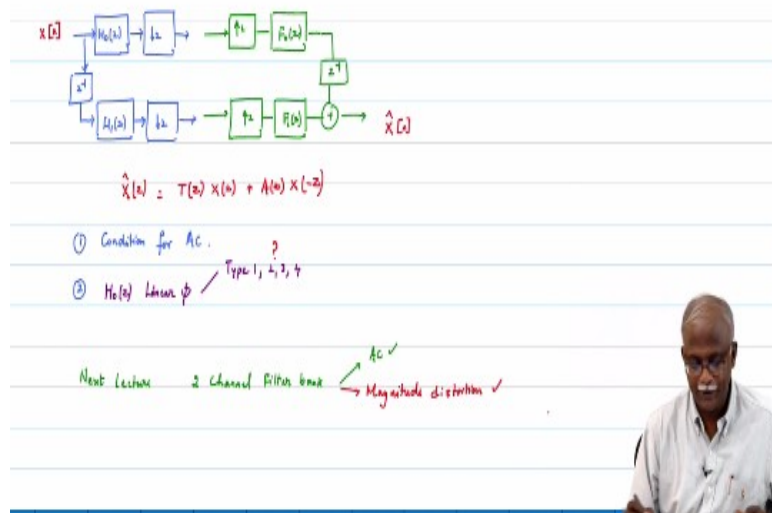 x[n] H₀(z) ↓2 ↑2 F₀(z)
z⁻¹ z⁻¹
H₁(z) ↓2 ↑2 F₁(z) + x̂[n]
X̂(z) = T(z) X(z) + A(z) X(-z)
① Condition for AC.
?
Type 1, 2, 3, 4
② H₀(z) Linear φ
AC ✓
Next Lecture 2 Channel Filter bank
Magnitude distortion ✓